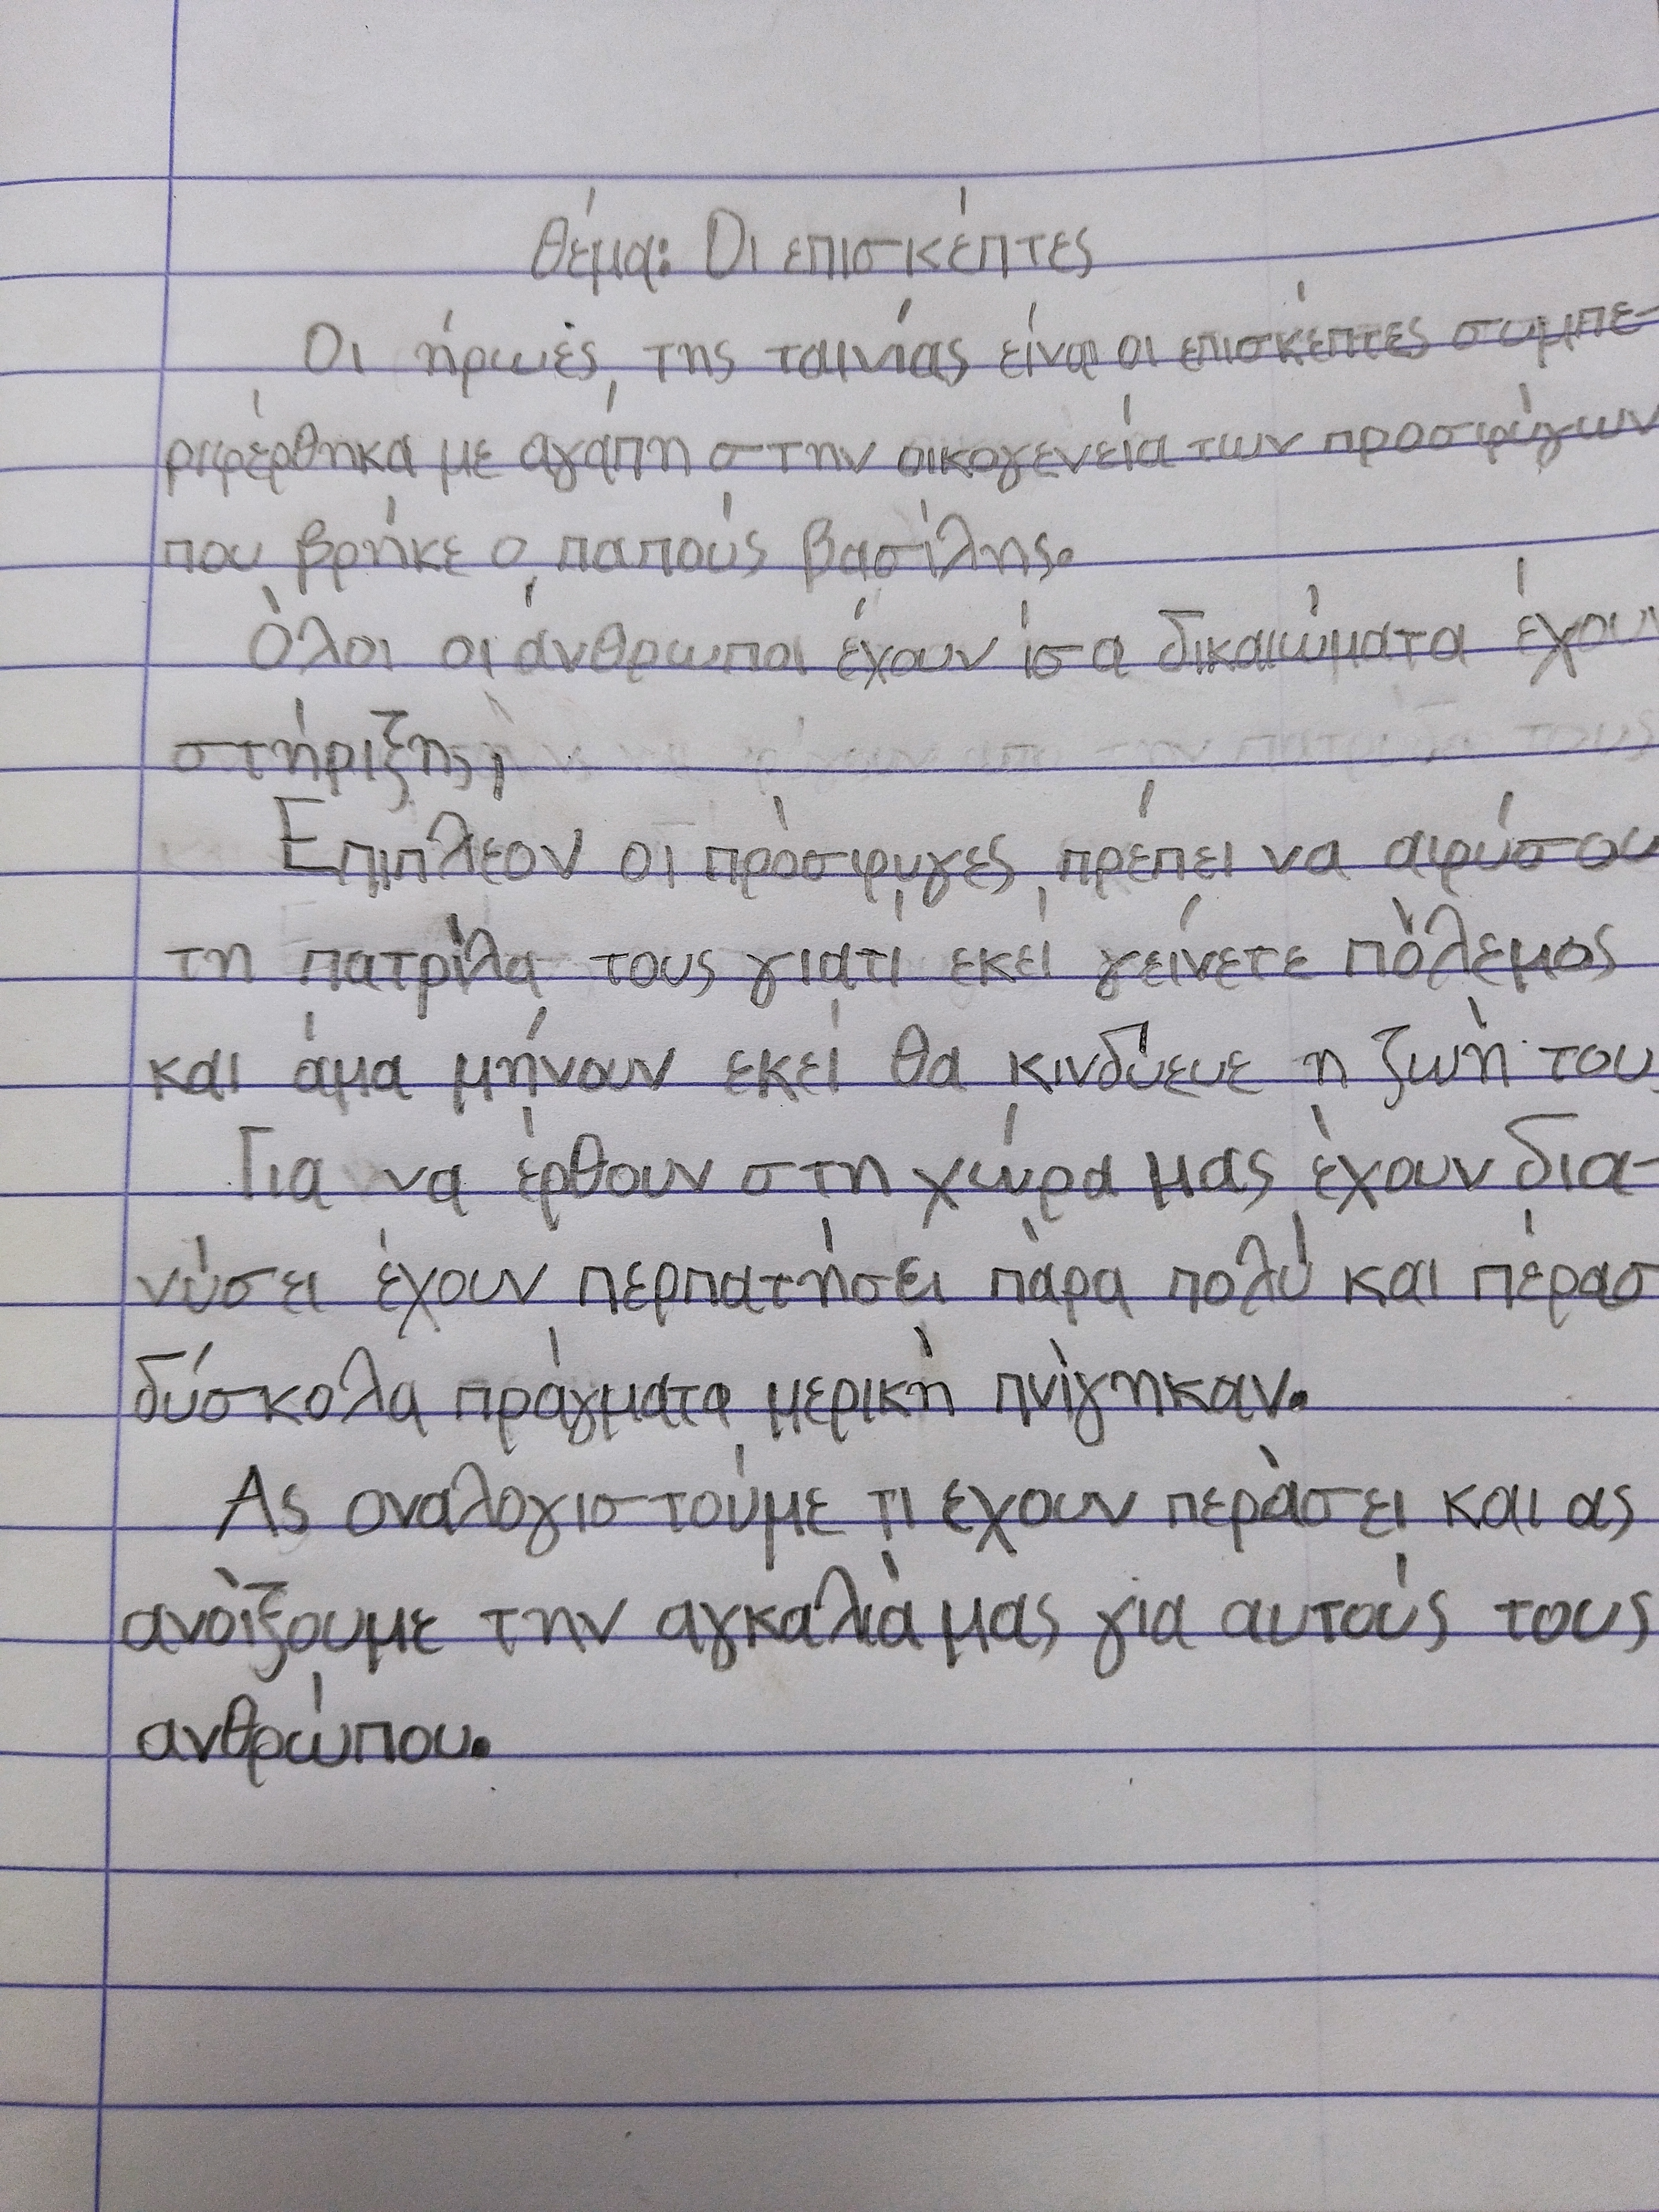 θέμα: Οι επισκέπτες
Οι ήρωές, της ταινίας είναι οι επισκέπτες συμπε-
ριφέρθηκα με αγάπη στην οικογενεία των προσφύγων
που βρήκε ο παπούς βασίλης.
Όλοι οι άνθρωποι έχουν ίσα δικαιώματα έχουν
στήριξης,
Επιπλέον οι πρόσφυγες πρέπει να αφύσου
τη πατρίλα τους γιατί εκεί γείνετε πόλεμος
και άμα μήνουν εκεί θα κινδύευε η ζωή τους
Για να έρθουν στη χώρα μας έχουν δια-
νύσει έχουν περπατήσει πάρα πολύ και πέρασ
δύσκολα πράγματα μερική πνίγηκαν.
Ας αναλογιστούμε τι έχουν περάσει και ας
ανοίξουμε την αγκαλιά μας για αυτούς τους
ανθρώπου.